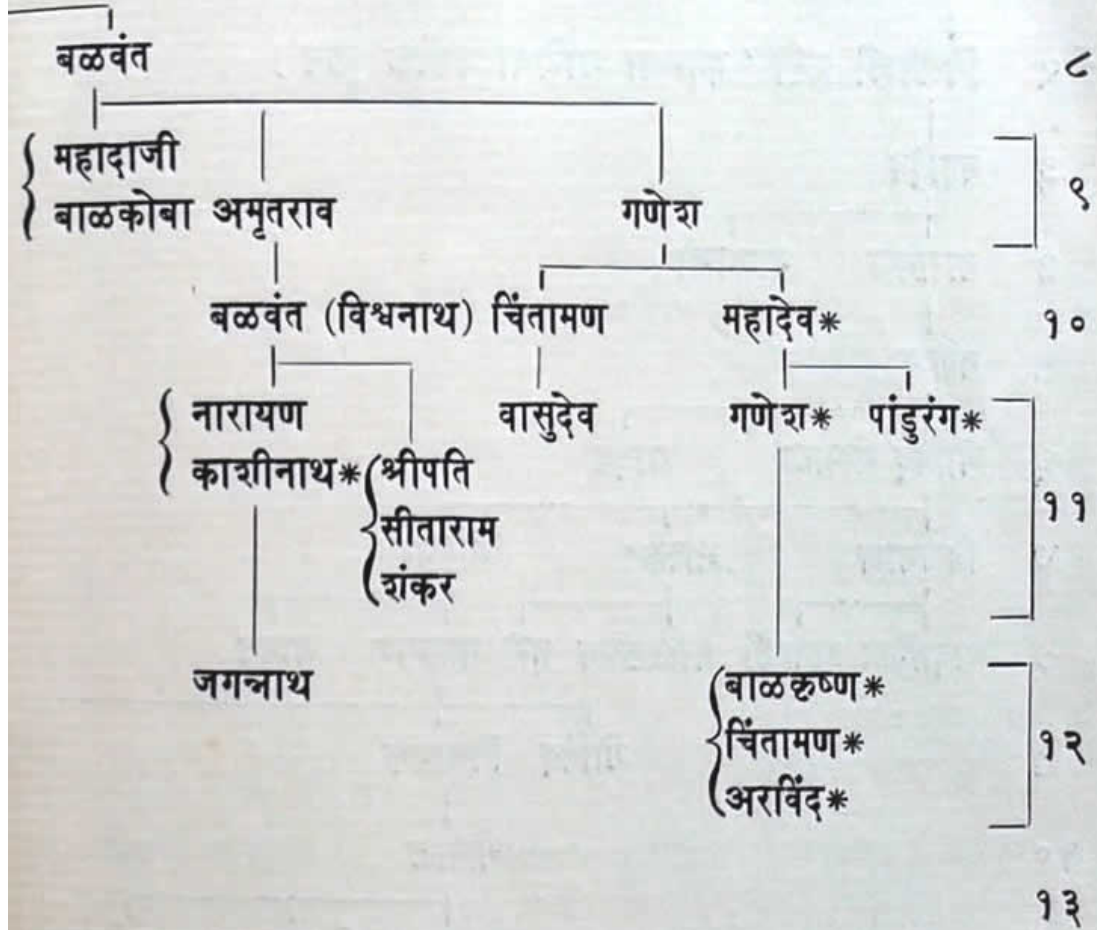 बळवंत ८
महादाजी
बाळकोबा अमृतराव गणेश ९
बळवंत (विश्वनाथ) चिंतामण महादेव* १०
नारायण वासुदेव गणेश* पांडुरंग*
काशीनाथ* श्रीपति
सीताराम ११
शंकर
जगन्नाथ बाळकृष्ण*
चिंतामण* १२
अरविंद*
१३